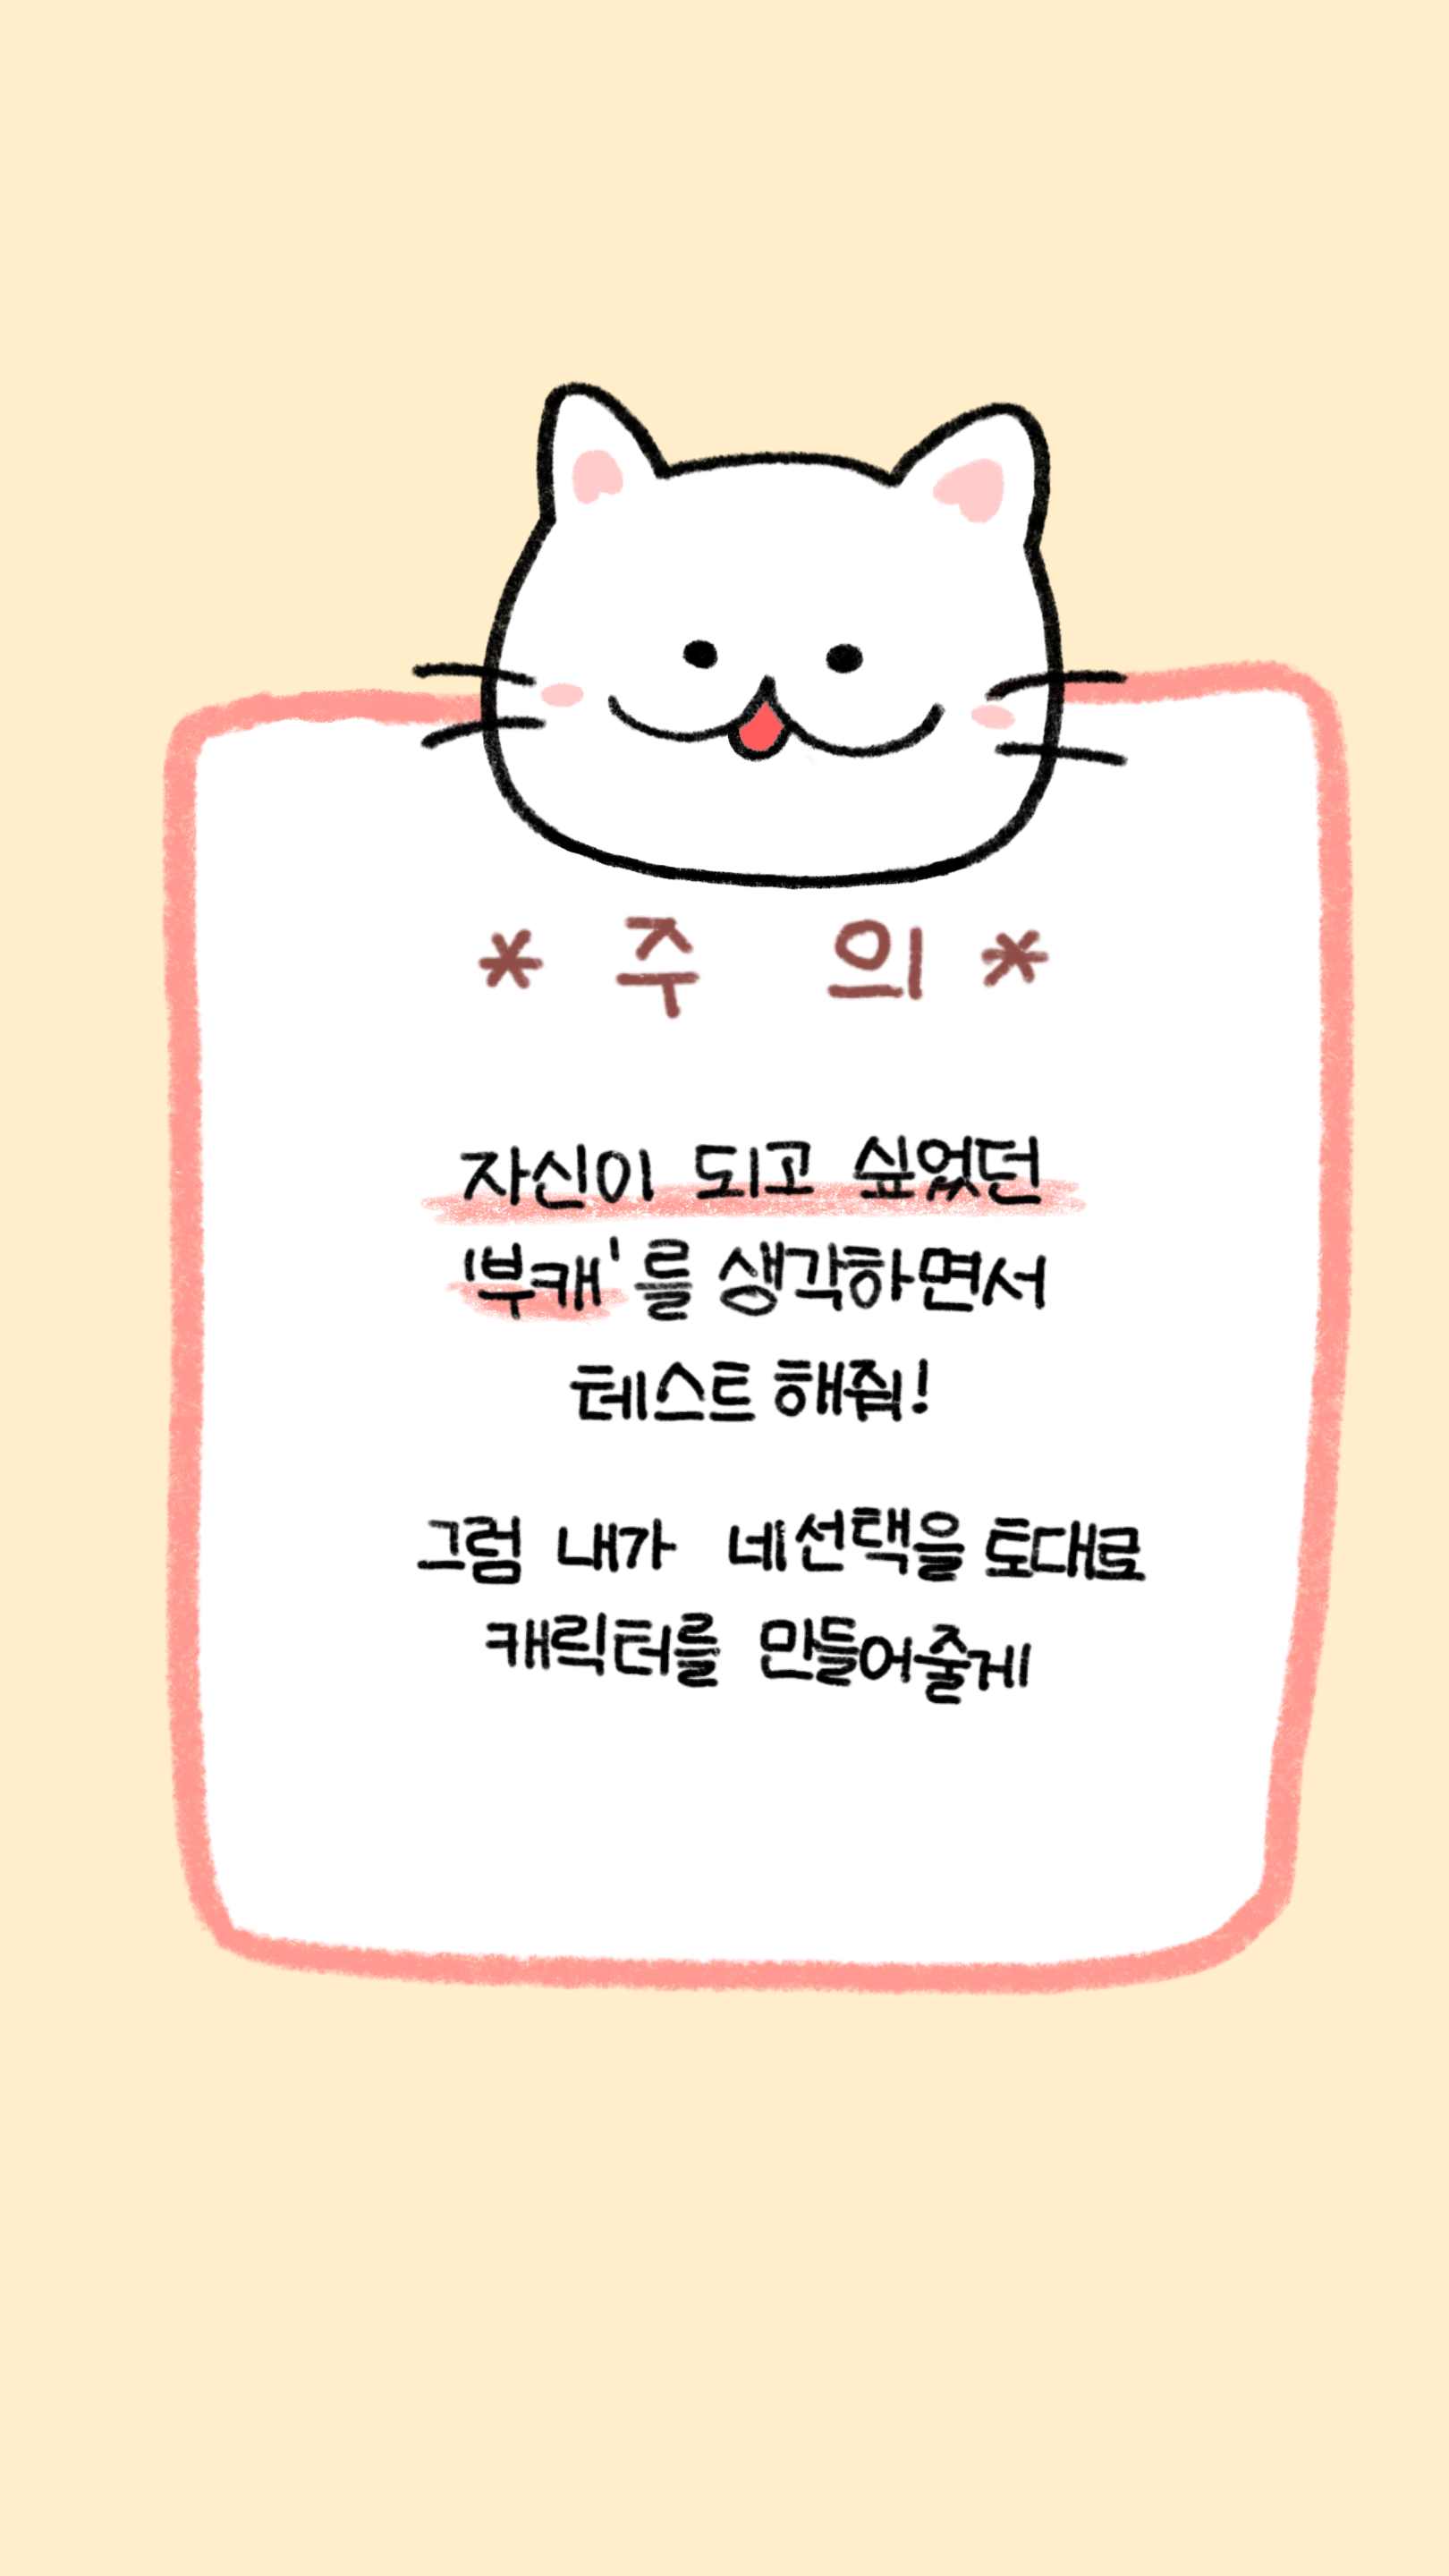 * 주 의 *
자신이 되고 싶었던
'부캐'를 생각하면서
테스트 해줘!
그럼 내가 네선택을 토대로
캐릭터를 만들어줄게